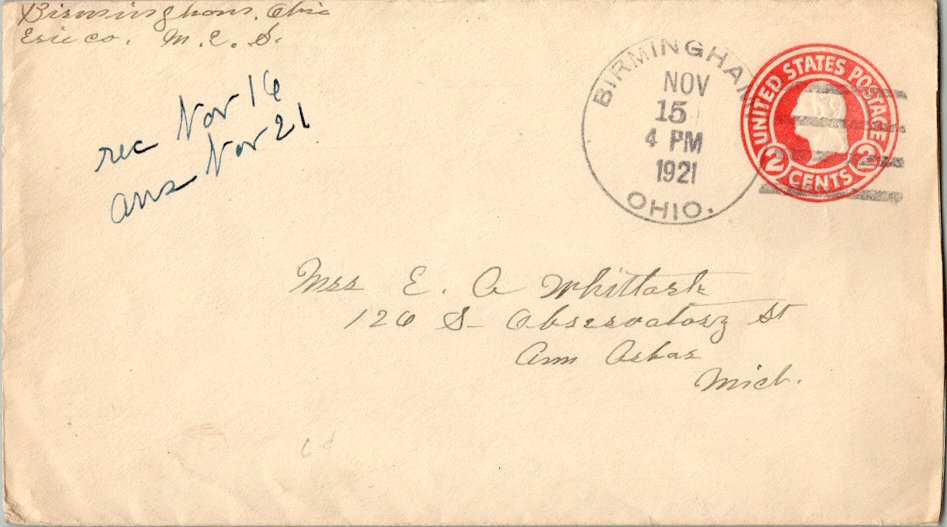 Birmingham, Ohio
Erie co. M. E. S.
rec Nov 16
ans Nov 21
BIRMINGHAM
NOV
15
4 PM
1921
OHIO.
UNITED STATES POSTAGE
2 CENTS 2
Mrs E. A
126 S- Observatory St
Ann Arbor
Mich.